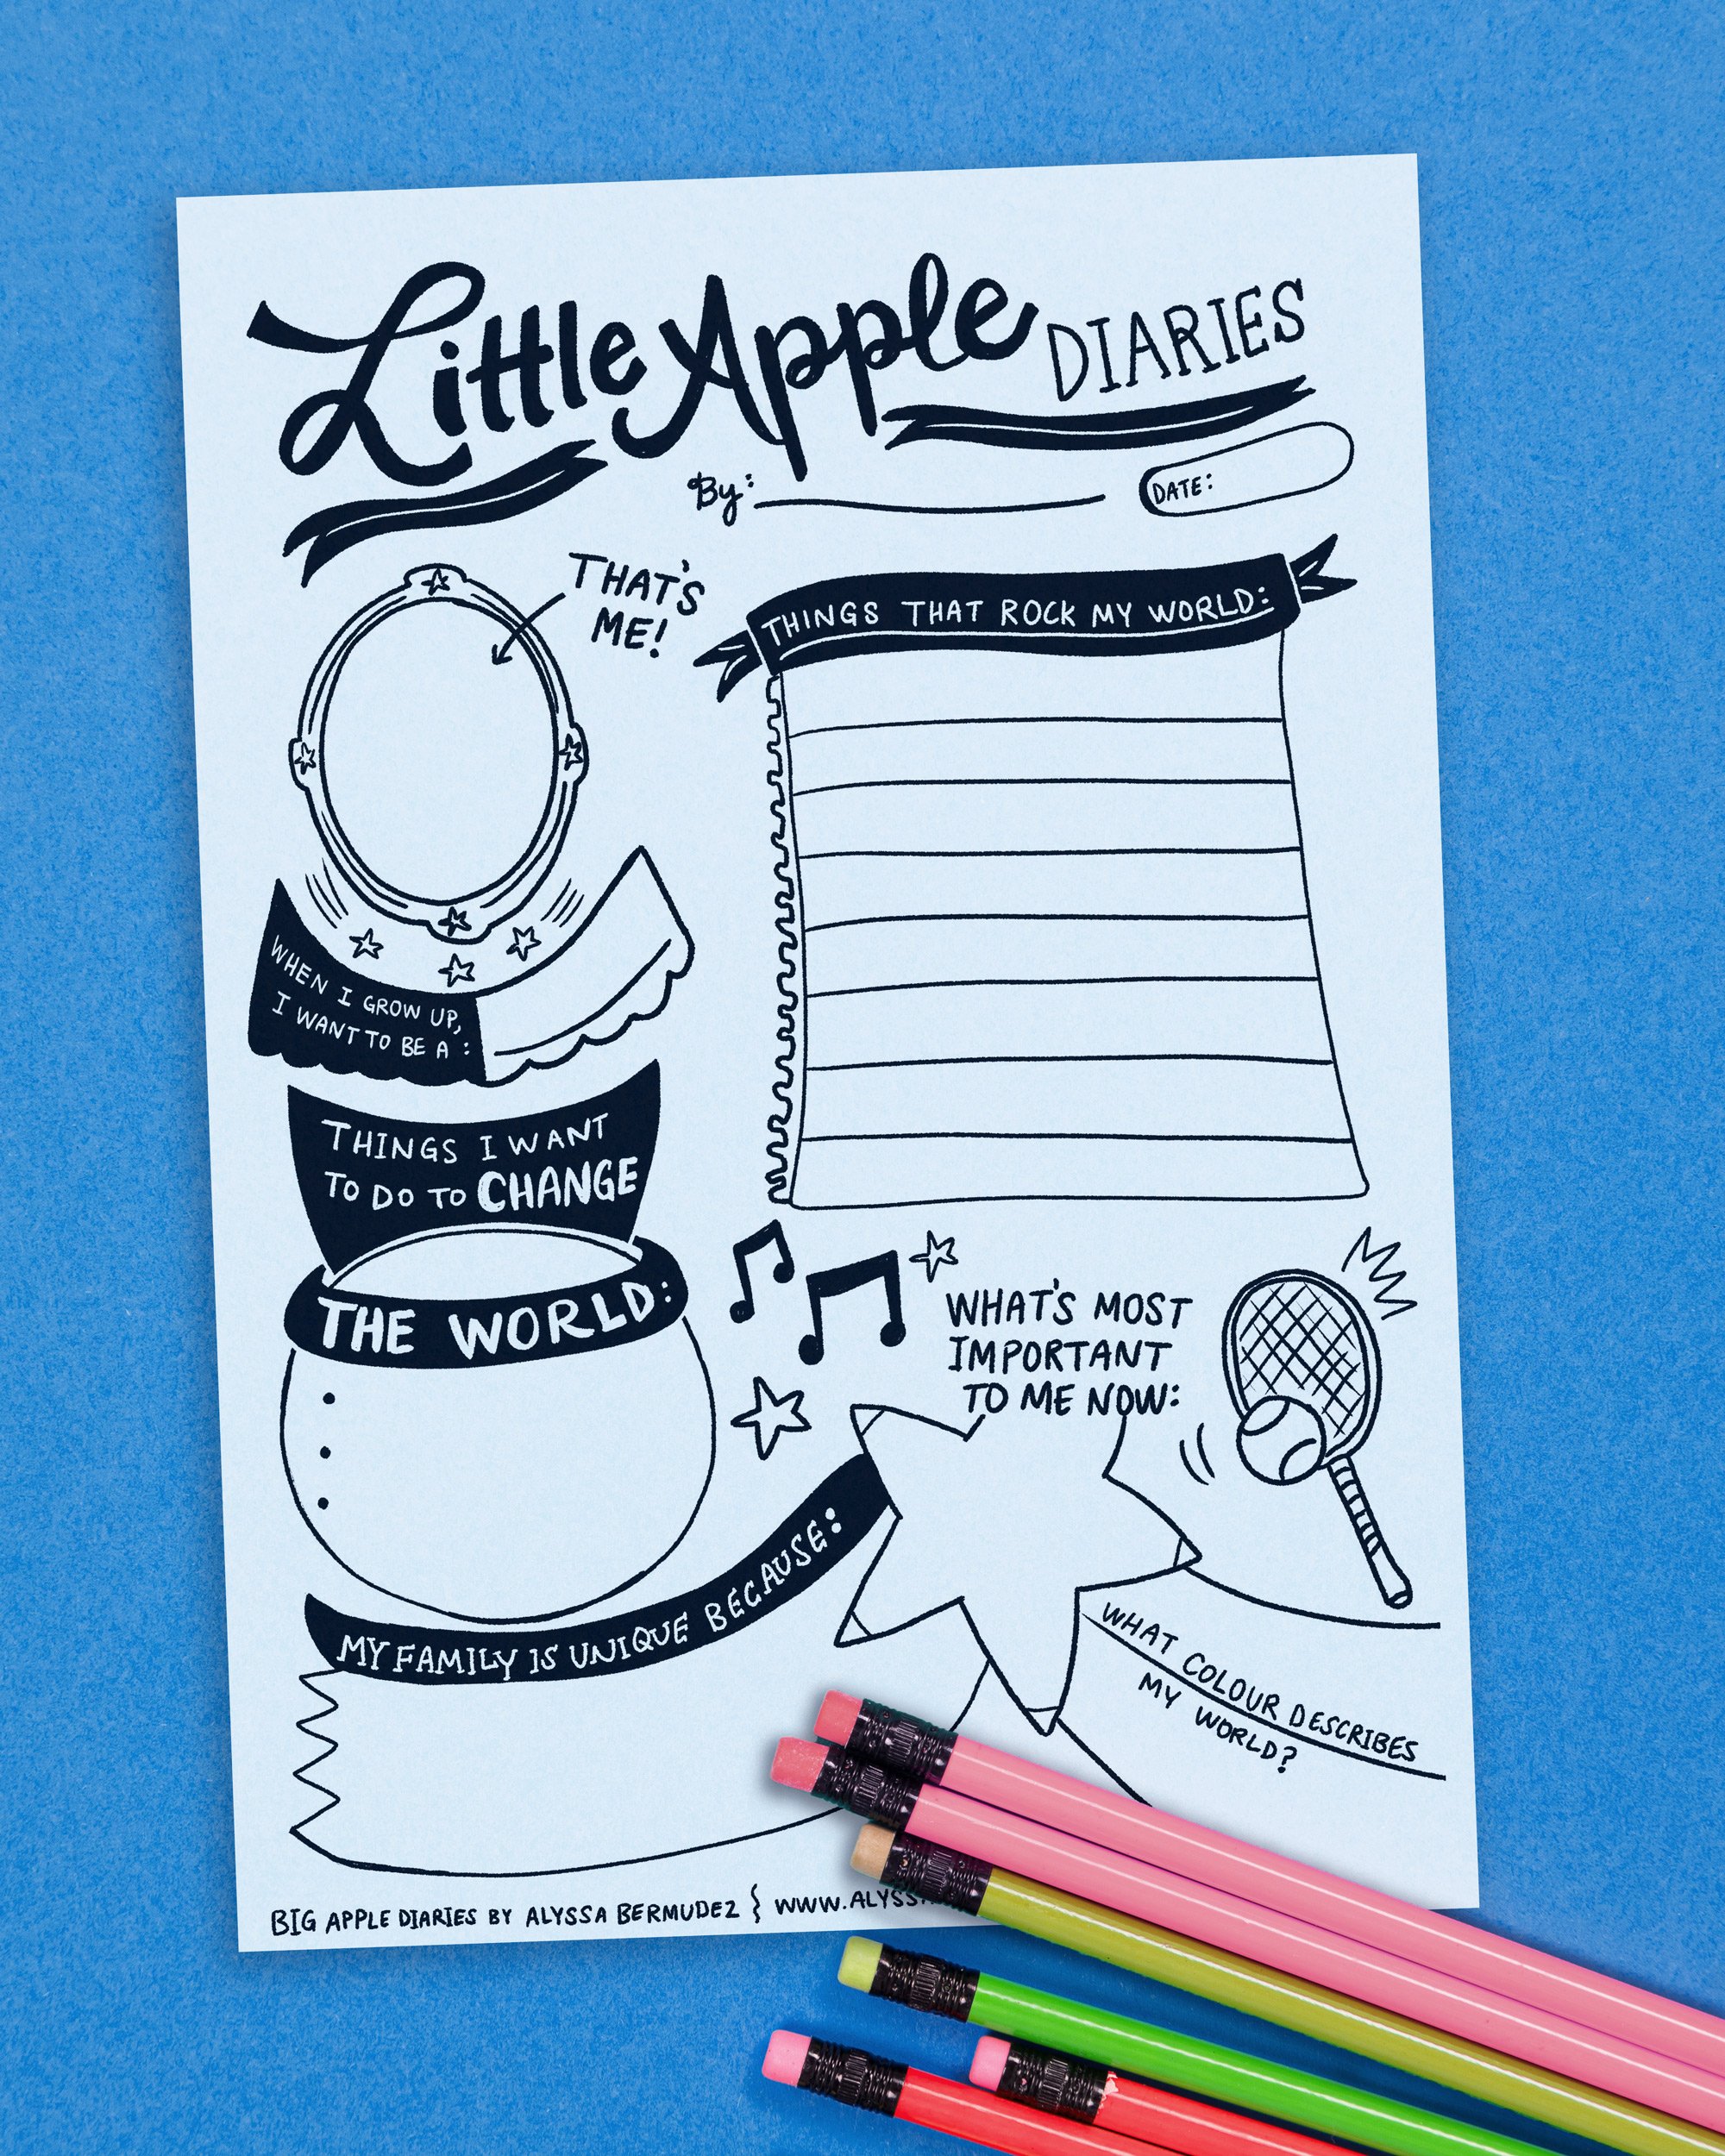 Little Apple DIARIES
By:
DATE:
THAT'S
ME!
THINGS THAT ROCK MY WORLD:
WHEN I GROW UP,
I WANT TO BE A:
THINGS I WANT
TO DO TO CHANGE
THE WORLD:
WHAT'S MOST
IMPORTANT
TO ME NOW:
MY FAMILY IS UNIQUE BECAUSE:
WHAT COLOUR DESCRIBES
MY WORLD?
BIG APPLE DIARIES BY ALYSSA BERMUDEZ } WWW.ALYSS